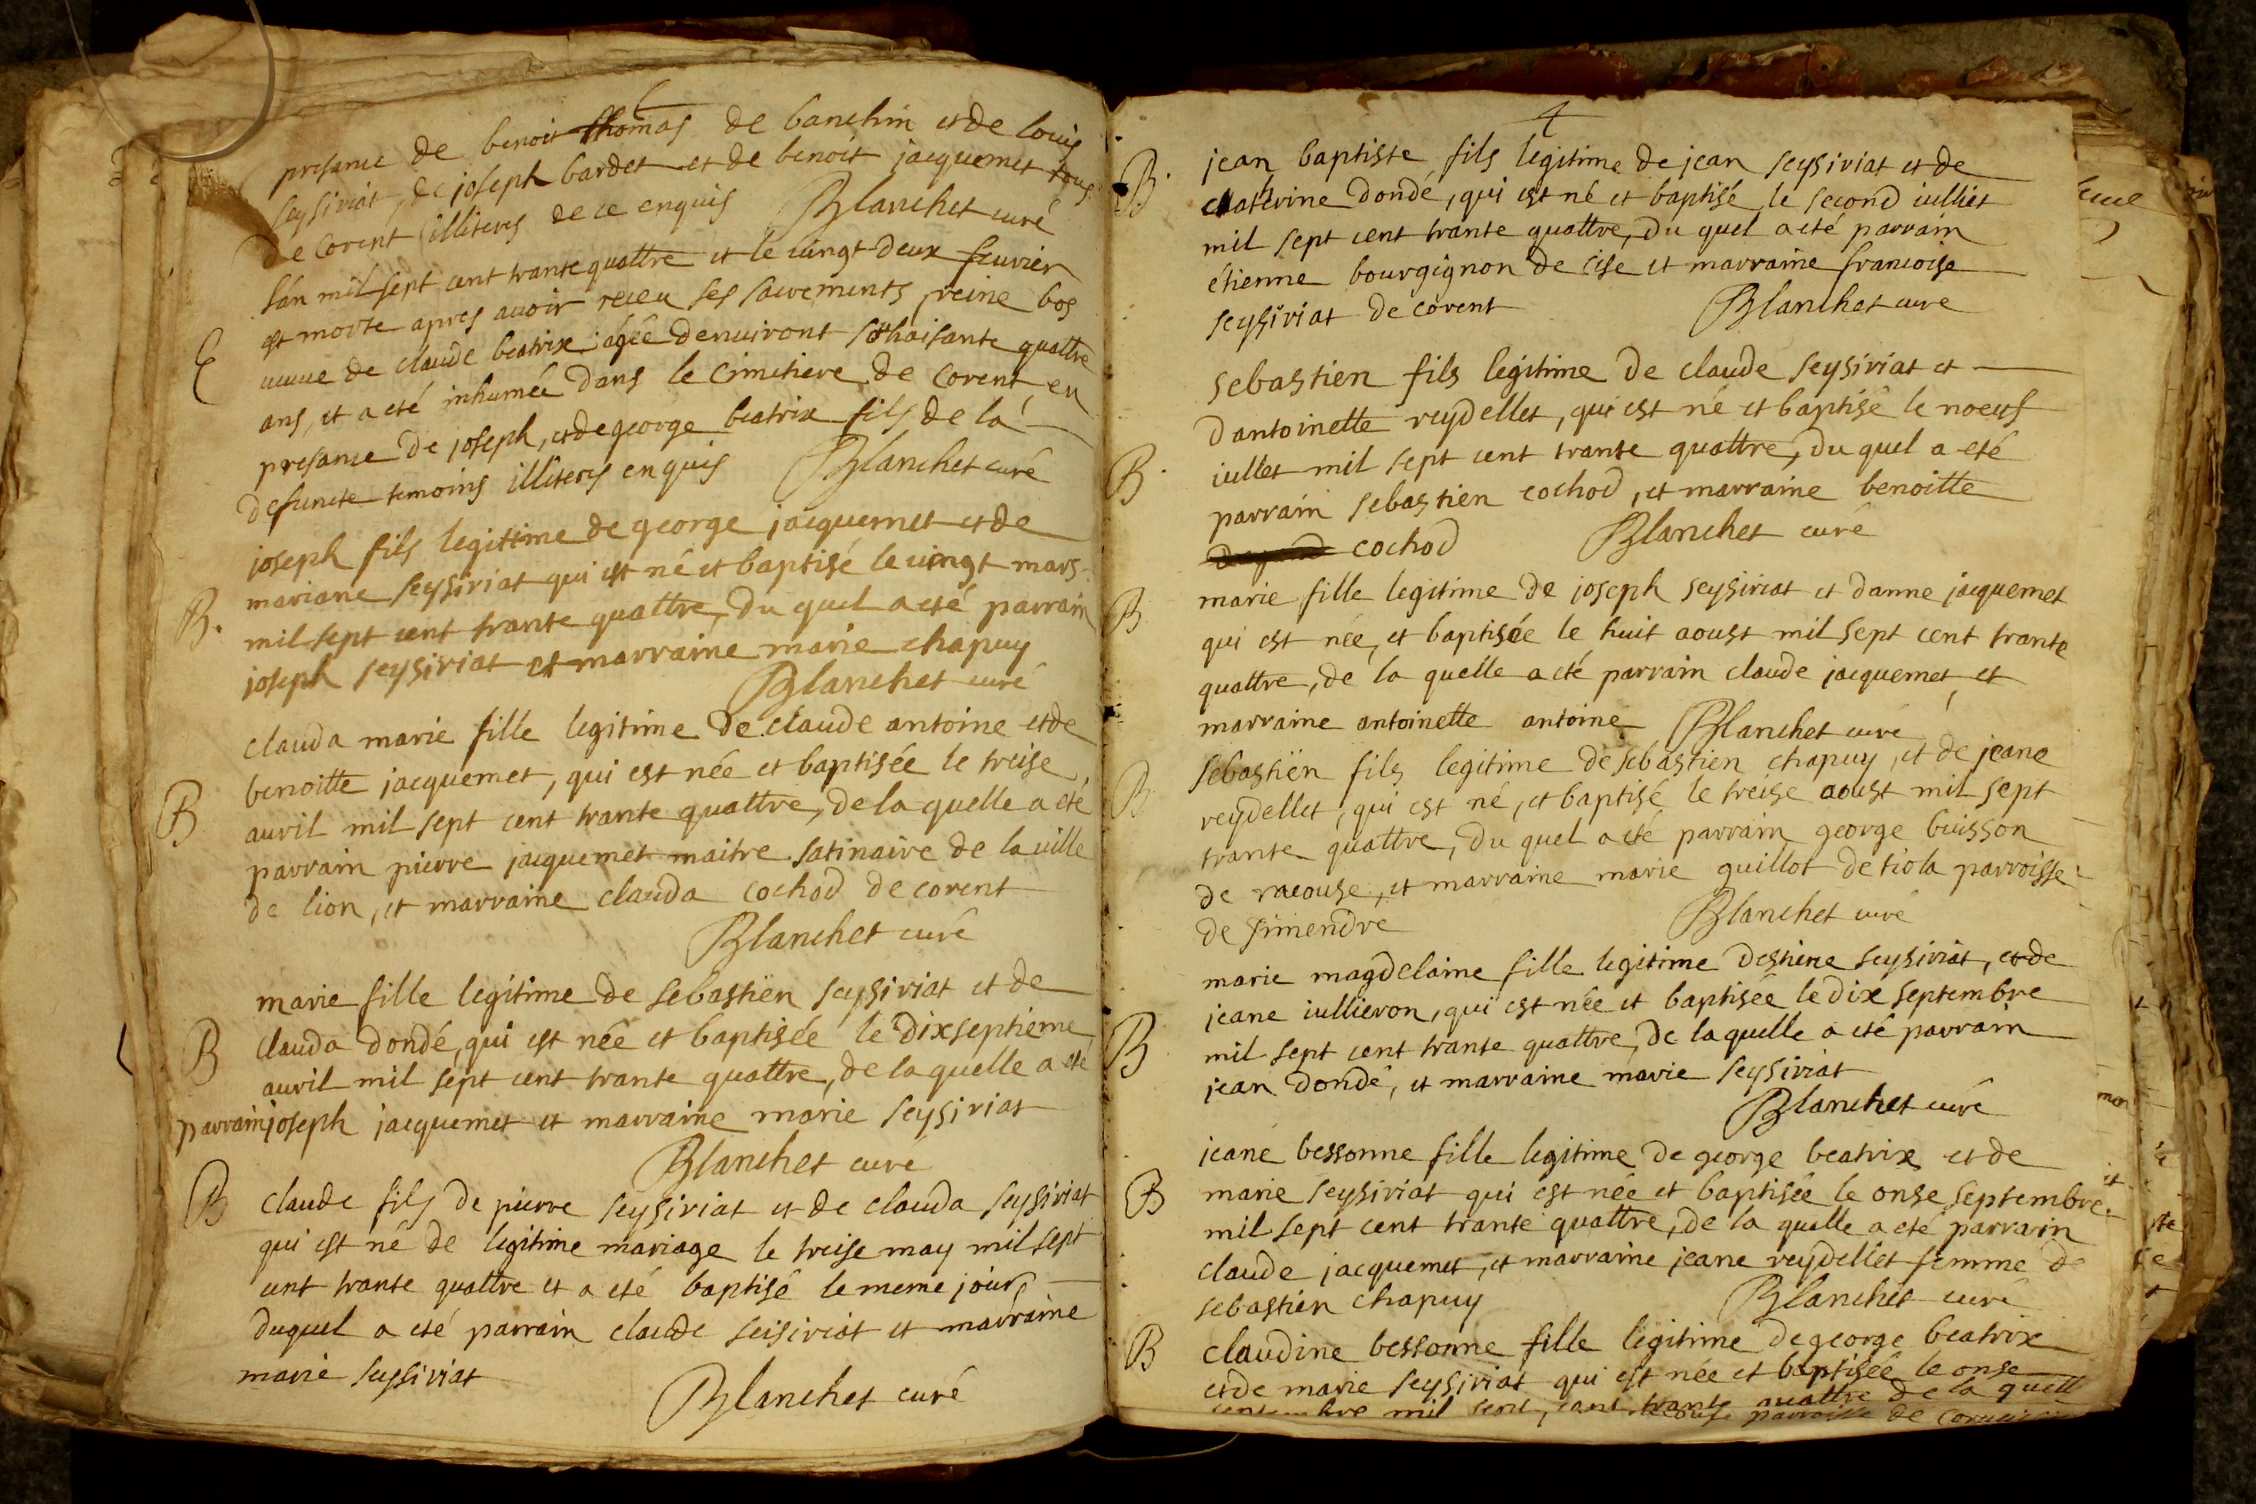 presance de benoit thomas de banchin et de louis
seysiriat, de joseph bardet et de benoit jacquemet tous
de corent illiteres de ce enquis Blanchet curé
E
lan mil sept cent trante quattre et le vingt deux feuvrier
est morte apres auoir receu ses sacrements reine bos
ueuue de claude beatrix agée denuiront soihaisante quattre
ans, et a eté inhumée dans le cimitiere de corent, en
presance de joseph, et de george beatrix fils de la
defuncte temoins illiteres enquis Blanchet curé
joseph fils legitime de george jacquemet et de
mariane seysiriat qui est né et baptisé le vingt mars
B.
mil sept cent trante quattre, du quel a eté parrain
joseph seysiriat et marraine marie chapuy
Blanchet curé
clauda marie fille legitime de claude antoine et de
benoitte jacquemet, qui est née et baptisée le treise
B
auril mil sept cent trante quattre, de la quelle a eté
parrain pierre jacquemet maitre satinaire de la uille
de lion, et marraine clauda cochod de corent
Blanchet curé
marie fille legitime de sebastien seysiriat et de
B clauda dondé, qui est née et baptisée le dixseptieme
auril mil sept cent trante quattre, de la quelle a eté
parrain joseph jacquemet et marraine marie seysiriat
Blanchet curé
B claude fils de pierre seysiriat et de clauda seysiriat
qui est né de legitime mariage le treise may mil sept
cent trante quattre et a eté baptisé le meme jour
duquel a eté parrain claude seisiriat et marraine
marie seysiriat
Blanchet curé
4
B. jean baptiste fils legitime de jean seysiriat et de
caterine dondé, qui est né et baptisé le second iulliet
mil sept cent trante quattre, du quel a eté parrain
etienne bourgignon de cise et marraine francoise
seysiriat de corent Blanchet curé
sebastien fils legitime de claude seysiriat et
dantoinette reydellet, qui est né et baptisé le noeuf
B
iullet mil sept cent trante quattre, du quel a eté
parrain sebastien cochod, et marraine benoitte
cochod Blanchet curé
B marie fille legitime de joseph seysiriat et danne jacquemet
qui est née, et baptisée le huit aoust mil sept cent trante
quattre, de la quelle a eté parrain claude jacquemet, et
marraine antoinette antoine Blanchet curé
B sebastien fils legitime de sebastien chapuy, et de jeane
reydellet, qui est né, et baptisé le treise aoust mil sept
trante quattre, du quel a eté parrain george buisson
de racouse, et marraine marie guillot de tiola parroisse
de simendre Blanchet curé
marie magdelaine fille legitime destiene seysiriat, et de
jeane iullieron, qui est née et baptisée le dix septembre
B mil sept cent trante quattre, de la quelle a eté parrain
jean dondé, et marraine marie seysiriat
Blanchet curé
jeane bessonne fille legitime de george beatrix et de
B marie seysiriat qui est née et baptisée le onse septembre
mil sept cent trante quattre, de la quelle a eté parrain
claude jacquemet, et marraine jeane reydellet femme de
sebastien chapuy Blanchet curé
B claudine bessonne fille legitime de george beatrix
et de marie seysiriat qui est née et baptisée le onse
septembre mil sept cent trante quattre de la quell
parroisse de